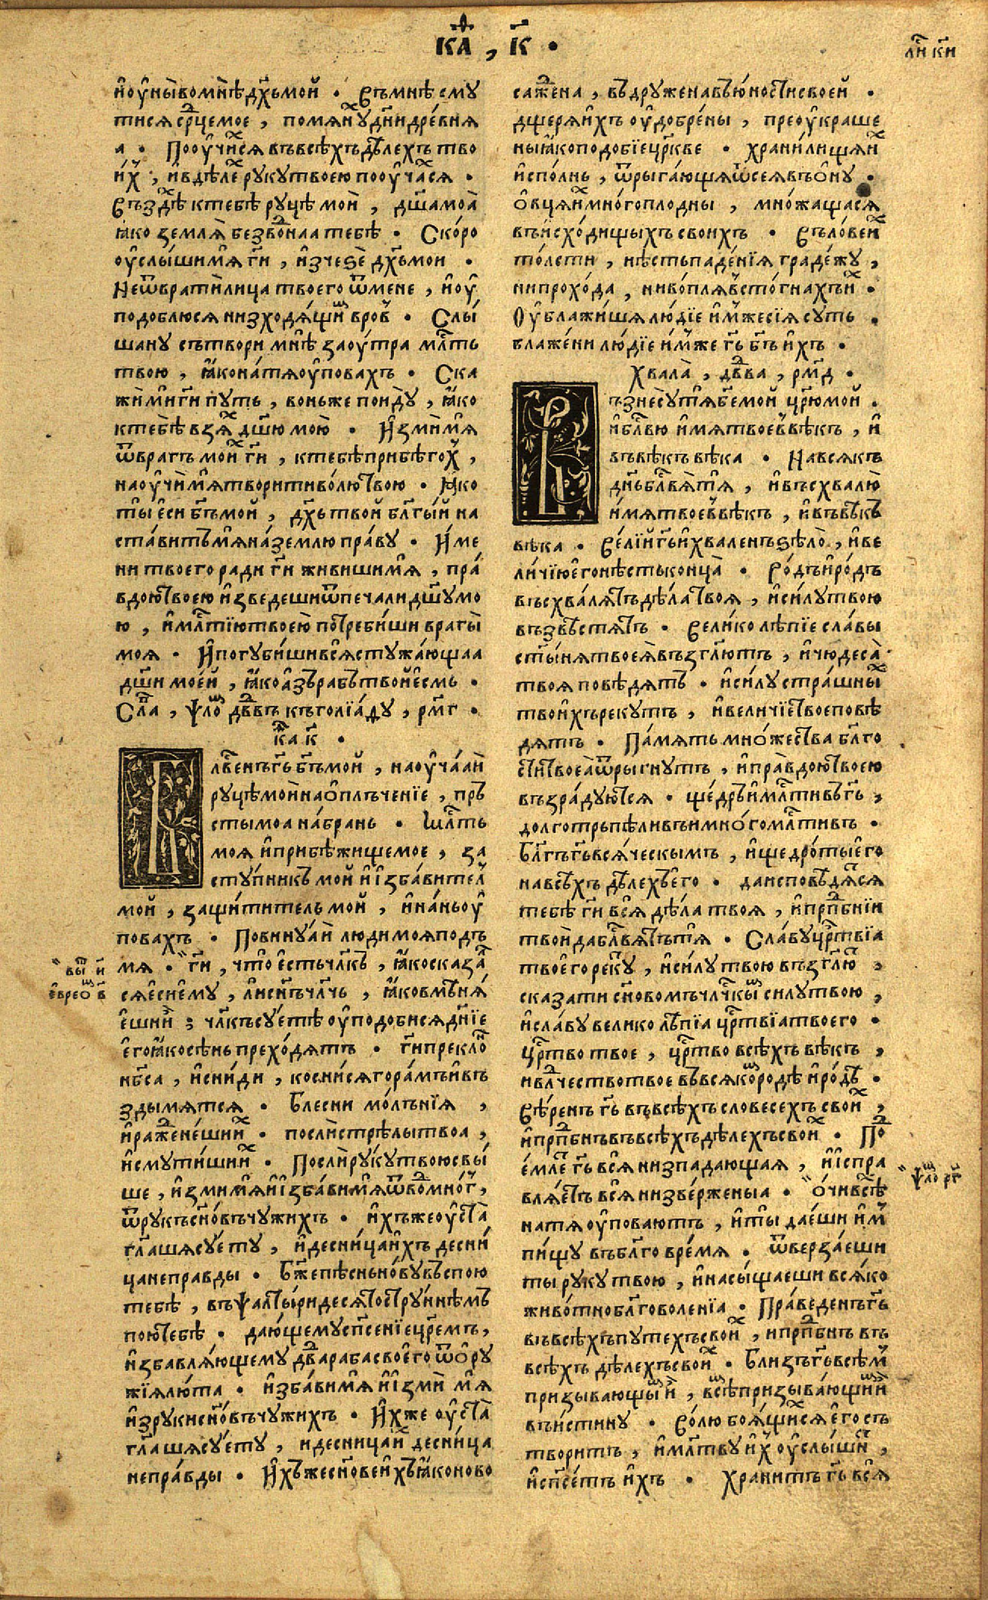 каⷴ҇ , к҃ .
лⷭ҇и к҃и
и҆ оу҆ны во мнѣ дх҃ъ мой . въ мнѣ сму
тися ср҃це мое , помянуⷯ дн҃и древня
а . Поѹ҆чиⷯся въ всѣхъ дѣлехъ тво
иⷯ , и҆ в дѣле рукѹ твоею поѹ҆чаⷯся .
Въздѣⷯ к тебѣ рѹцѣ мои , дш҃а моа̀
ꙗ҆ко земля безводна тебѣ . Скоро
оу҆слыши мѧ̀ гн҃и , и҆зчезе дх҃ъ мои .
Не ѿврати лица твоего ѿ мене , и҆ оу҆
подоблюся низходящиⷨ в ровⸯ . Слы
шану сътвори мнѣ заоутра млⷭ҇ть
твою , ꙗ҆ко на тя оу҆повахъ . Ска
жи ми гн҃и путь , во ньже поиду , ꙗ҆ко
к тебѣ взяⷯ дш҃ю мою . И҆зми мя
ѿ врагъ моиⷯ гн҃и , к тебѣ прибѣгоⷯ ,
наоучи мя творити волю твою . ꙗ҆ко
ты еси бг҃ъ мой , дх҃ъ твой бл҃гый на
ставитъ мя на землю праву . И҆ме
ни твоего ради гн҃и живиши мя , пра
вдою твоею и҆зведеши ѿ печали дш҃у мо
ю , и҆ млⷭ҇тїю твоею потребиши врагы
моя . И҆ погубиши вся стужающаа
дш҃и моей , ꙗ҆ко азъ рабъ твой есмь .
Слⷡ҇а , ѱалоⷨ дв҃двъ къ голїаду , рмг .
каⷴ҇ к҃ .
Блⷭ҇венъ гь҃ бг҃ъ мой , наоучаай
руцѣ мои на ополъченїе , пръ
сты моа на брань . Млⷭ҇ть
моя и҆ прибѣжище мое , за
ступникъ мой и҆ избавителⸯ
мой , защититель мой , и҆ на ньоу҆
повахъ . Повинуай люди моя подъ
мя . гн҃и , что естъ чл҃къ , ꙗ҆ко сказаⷧ
ся еси ему , ли сн҃ъ чл҃чь , ꙗ҆ко вмѣня
еши и҆ ; чл҃къ суетѣ оу҆подобися дн҃їе
его ꙗ҆ко сѣнь преходятъ . гн҃и преклоⷩ҇
нб҃са , и҆ сниди , коснися горамъ и҆ въ
здымятся . Блесни молънїя ,
и҆ раженеши иⷯ . посли стрѣлы твоа ,
и҆ смутиши иⷯ . Посли руку твою свы
ше , и҆зми мя и҆ избави мя ѿ водъ многⸯ ,
ѿ рукъ сн҃овъ чужихъ . и҆хъже оуста̀
гл҃аша суету , и҆ десница и҆хъ десни
ца неправды . Бж҃е пѣснь нову въспою
тебѣ , въ ѱалтыри десятострунне мъ
пою тебѣ . дающему спс҃енїе цр҃емъ ,
и҆збавляющему дв҃да раба своего ѿ ору
жїя люта . и҆збави мя и҆ изми мя
и҆з руки сн҃овъ чужихъ . И҆хже оуста
гл҃аша суету , и҆ десница иⷯ десница
неправды . И҆хъже сн҃ове и҆хъ ꙗ҆ко ново
выⷲ҇ и҆
еврео
сажена , въдружена въ юности своей .
дщеря и҆хъ оу҆добрены , преоукраше
ны ꙗ҆ко подобїе цр҃кве . хранилища и҆ⷯ
и҆сполнь , ѿрыгающя ѿ сея в ону .
овця иⷯ многоплодны , множащася
въ исходищыхъ своихъ . Воловеиⷯ
толсти , нѣсть паденїя градежу ,
ни прохода , ни вопля в стогнахъ иⷯ .
Оу҆блажишя людїе и҆мже сїя суть .
блажени людїе и҆мже гь҃ бг҃ъ и҆хъ .
Хвала̀ , дв҃ва , рмд .
Възнесу тя бж҃е мой цр҃ю мой .
и҆ блⷭ҇влю и҆мя твое в вѣкъ , и҆
въ вѣкъ вѣка . На всякъ
днь блⷭ҇влю тя , и҆ въсхвалю
и҆мя твое в вѣкъ , и҆ въ вѣкъ
вѣка . Велїй гь҃ и҆ хваленъ ѕѣло , и҆ ве
личїю его нѣсть конца . Родъ и҆ родъ
въсхвалятъ дѣла твоя , и҆ силу твою
възвѣстятъ . Великолѣпїе славы
ст҃ыня твоея възгл҃ютъ , и҆ чюдеса̀
твоя повѣдятъ . и҆ силу страшныⷯ
твоихъ рекутъ , и҆ величїе твое повѣ
дятъ . Память множества бл҃го
сти твоеа̀ ѿрыгнутъ , и҆ правдою твоею
възрадуются . щедръ и҆ млⷭ҇тивъ гь҃ ,
долготръпѣливъ и҆ многомлⷭ҇тивъ .
Бл҃гъ гь҃ всяческымъ , и҆ щедроты его
на всѣхъ дѣлехъ его . да исповѣдятся
тебѣ гн҃и вся дѣла твоя , и҆ прпⷣбнїи
твои да блⷭ҇вятъ тя . Славу цр҃ствїа
твоего рекутⸯ , и҆ силу твою възгл҃ютⸯ ,
сказати сн҃овомъ чл҃чкыⷨ силу твою ,
и҆ славу великолѣпїа цр҃ствїа твоего .
цр҃тво твое , цр҃тво всѣхъ вѣкъ ,
и҆ влⷣчество твое въ всякоⷨ родѣ и҆ родѣ .
Вѣренъ гь҃ въ всѣхъ словесехъ своиⷯ ,
и҆ прпⷣбнъ въ всѣхъ дѣлехъ своиⷯ . Поⷣ
емлетⸯ гь҃ вся низпадающая , и҆ испра
вляетъ вся низверженыа . очи всѣⷯ
на тя оу҆повають , и҆ ты даеши и҆мⸯ
пищу въ бл҃го время . ѿверзаеши
ты руку твою , и҆ насыщаеши всяко
животно бл҃говоленїа . Праведенъ гь҃
въ всѣхъ путехъ своиⷯ , и҆ прпⷣбнъ въ
всѣхъ дѣлехъ своиⷯ . Близъ гь҃ всѣмⸯ
призывающыⷨ и҆ , всѣⷨ призывающиⷨ и҆
въ истину . Волю боящиⷯся его съ
творитъ , и҆ млт҃ву иⷯ оу҆слышиⷮ ,
и҆ спс҃етъ и҆хъ . Хранитъ гь҃ вся
ѱалоⷨ рг҃